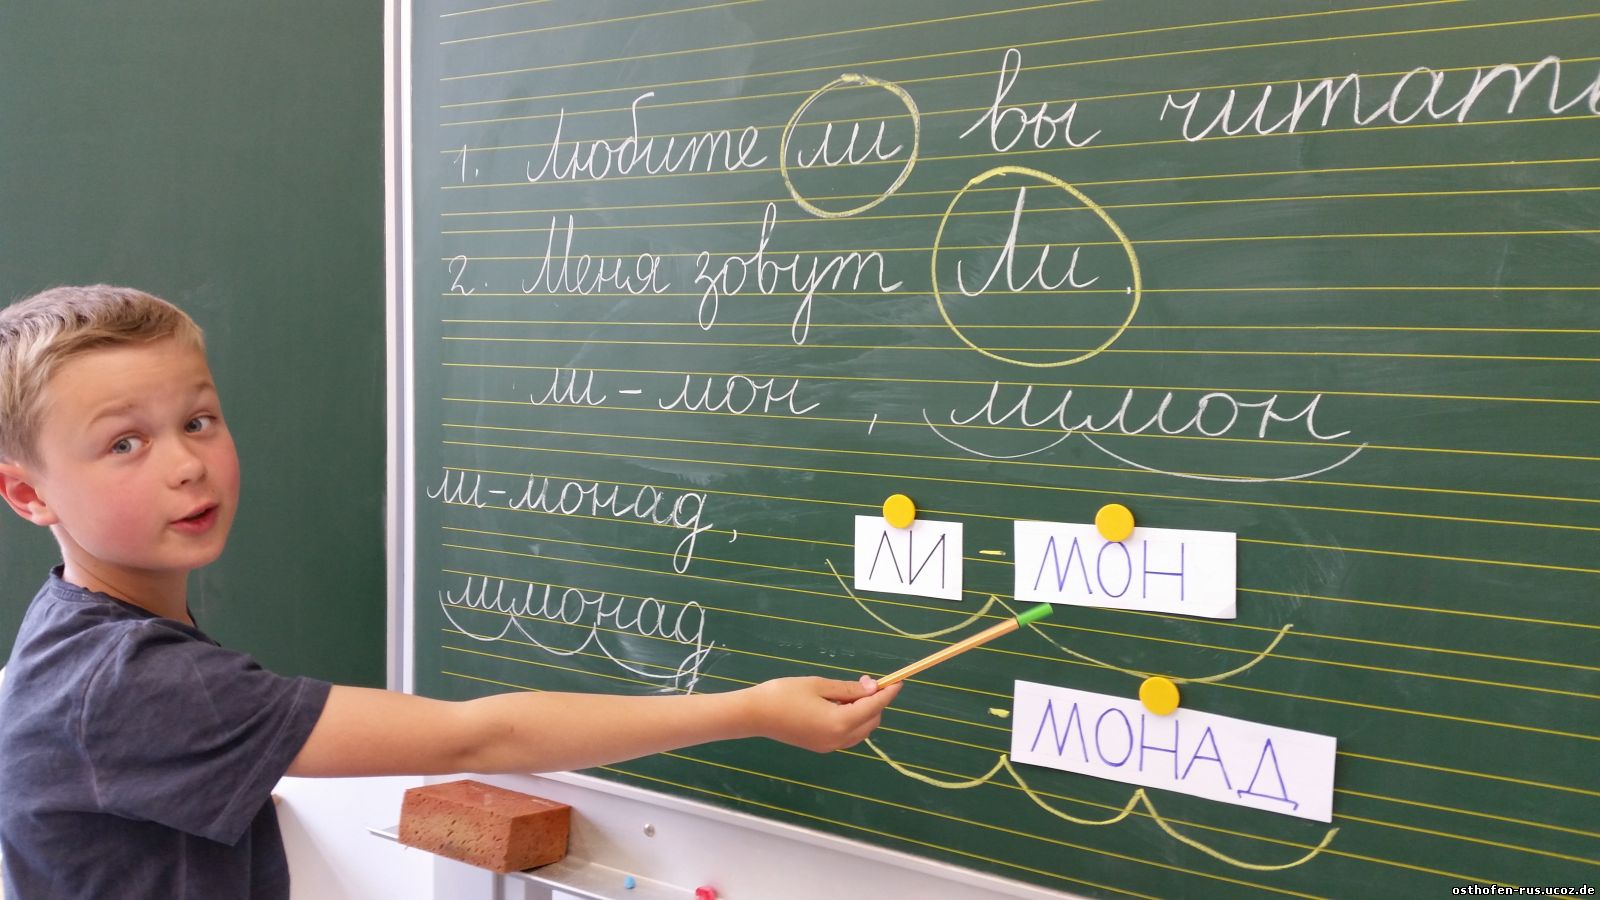 1. Любите ли вы читать
2. Меня зовут Ли.
ли-мон, лимон
ли-монад,
лимонад.
ЛИ - МОН
- МОНАД
osthofen-rus.ucoz.de